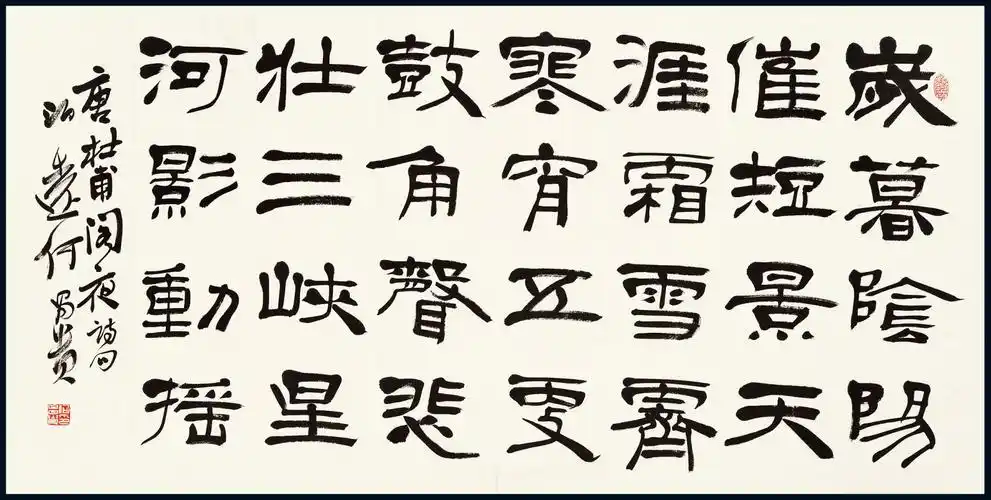 歲暮陰陽
催短景天
涯霜雪霽
寒宵五更
鼓角聲悲
壯三峽星
河影動搖
唐杜甫閣夜詩句
何昌貴